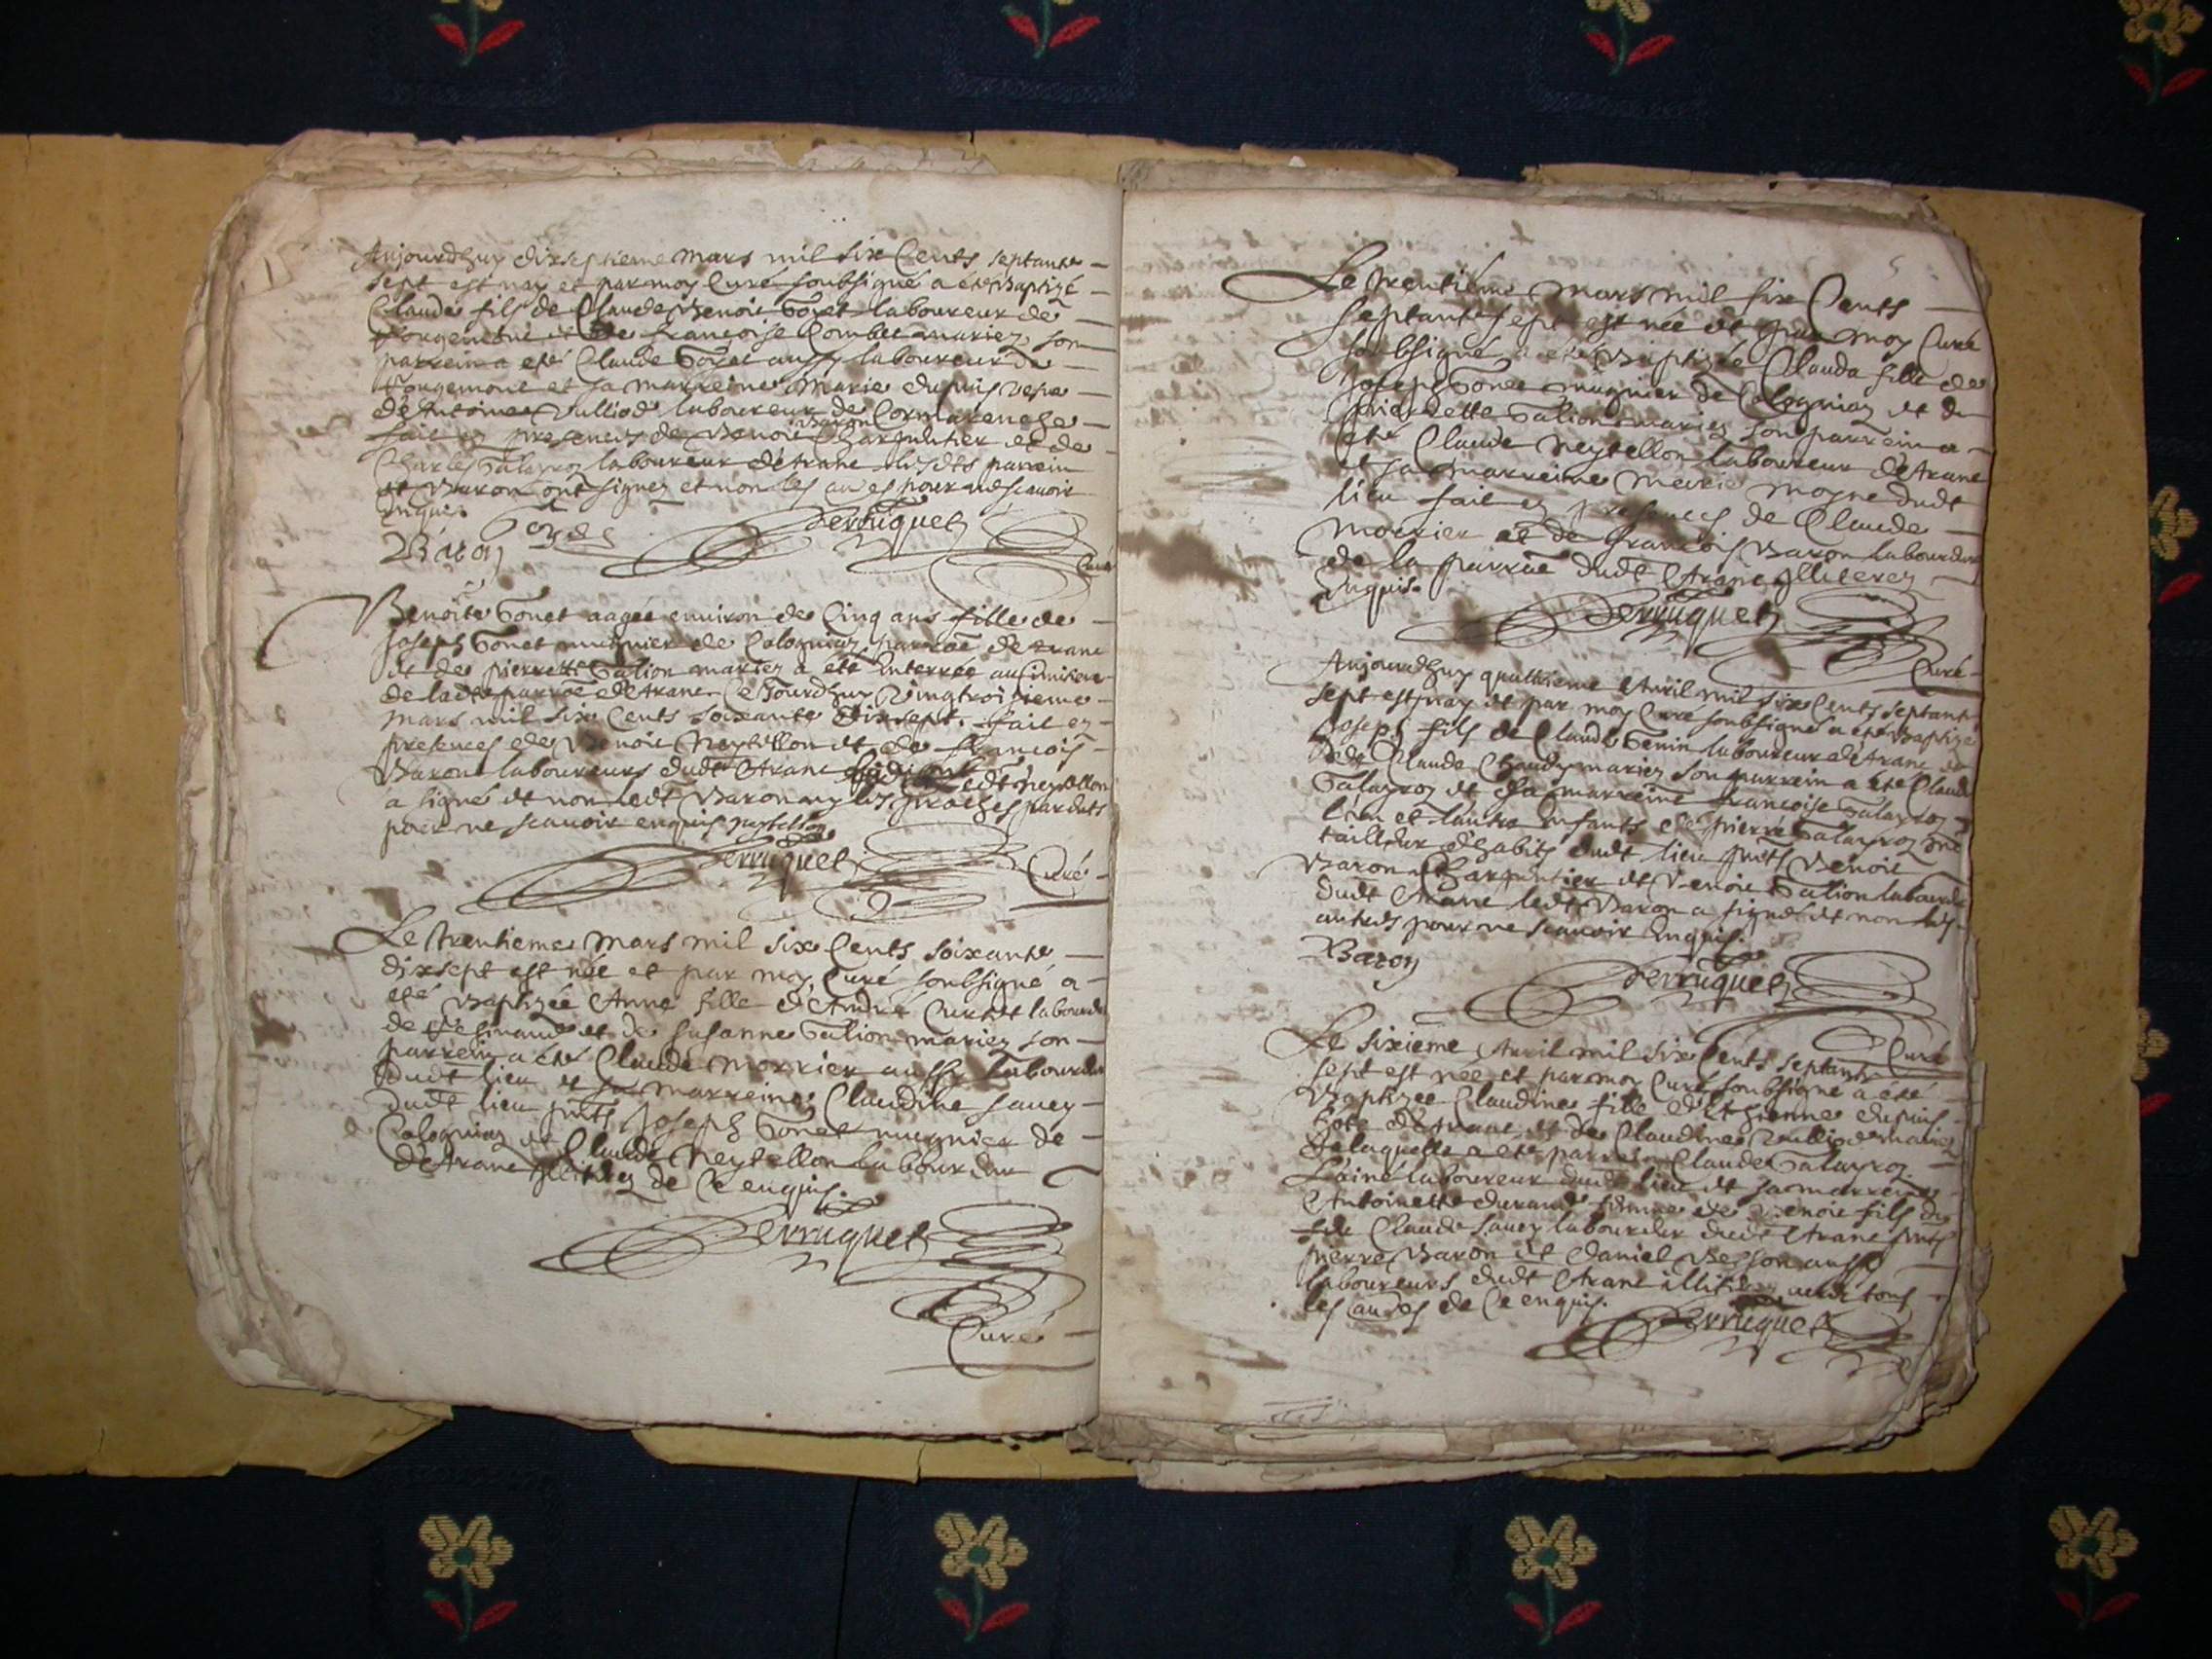 Aujourdhuy dixseptieme mars mil six Cents septante
sept est nay et par moy Curé soubsigné a été Baptizé
Claude fils de Claude Benoit Goyet laboureur de
et de francoise Combet mariez son
parrein a eté Claude Goyet aussy laboureur de
Rougemont et sa marreine Marie dupuis vefve
d'Antoine Vulliod laboureur de Cormarenche
fait en presences de Benoit Baron Charpentier et de
Charles Galayroz laboureur d'Arane lesdts parrein
et Baron ont signez et non les au es pour ne scavoir
enquis. Goyet
Baron Perruquet
Curé
Benoite Gonet aagée environ de Cinq ans fille de
Joseph Gonet mugnier de Colognian parroe d'Arane
et de pierrette Galion mariez a été Enterrée au Cimitiere
de ladte parroe d'Arane Ce Jourdhuy Vingtroisieme
mars mil six Cents soixante dixsept. fait en
presences de Benoit Neytellon et de francois
Baron laboureurs dudt Arane ledt Neytellon
a signé et non ledt Baron ny les proches parents
pour ne scavoir enquis Neytellon
Perruquet
Curé
Le trentieme mars mil six Cents soixante
dixsept est née et par moy Curé soubsigné a
eté Baptizée Anne fille d'André Curtet laboureur
de et de Susanne Galion mariez son
parrein a eté Claude Morrier aussy laboureur
dudt lieu et sa marreine Claudine Savey
dudt lieu pnts Joseph Gonet mugnier de
Colognian et Claude Neytellon laboureur
d'Arane Illiterez de Ce enquis.
Perruquet
Curé
5
Le trentiéme mars mil six Cents
septante sept est née et par moy Curé
soubsigné a eté Baptizée Clauda fille de
Joseph Gonet mugnier de Colognian et de
pierrette Galion mariez son parrein a
eté Claude Neytellon laboureur d'Arane
et sa marreine Marie Moyne dudt
lieu fait en presences de Claude
Morrier et de francois Baron laboureurs
de la parroe dudt Arane Illiterez
Enquis.
Perruquet
Curé
Aujourdhuy quatrieme Avril mil six Cents septante
sept est nay et par moy Curé soubsigné a eté Baptizé
Joseph fils de Claude Genin laboureur d'Arane et
de Claude Chaudy mariez son parrein a été Claude
Galayroz et sa marreine francoise Galayroz
l'un et l'autre enfants de pierre Galayroz me
tailleur d'habits dudt lieu pnts Benoit
Baron Charpentier et Benoit Galion laboureur
dudt Arane ledt Baron a signé et non les
autres pour ne scavoir Enquis.
Baron
Perruquet
Curé
Le sixieme Avril mil six Cents septante
sept est née et par moy Curé soubsigné a été
Baptizée Claudine fille d'Ethienne dupuis
hote d'Arane et de Claudine Vulliod mariez
de laquelle a eté parrein Claude Galayroz
L'ainé laboureur dudt lieu et sa marreine
Antoinette durand femme de Benoit fils de
feu Claude Savey laboureur dudt Arane pnts
pierre Baron et Daniel Besson aussy
laboureurs dudt Arane illiterez avec tous
les au es de Ce enquis.
Perruquet